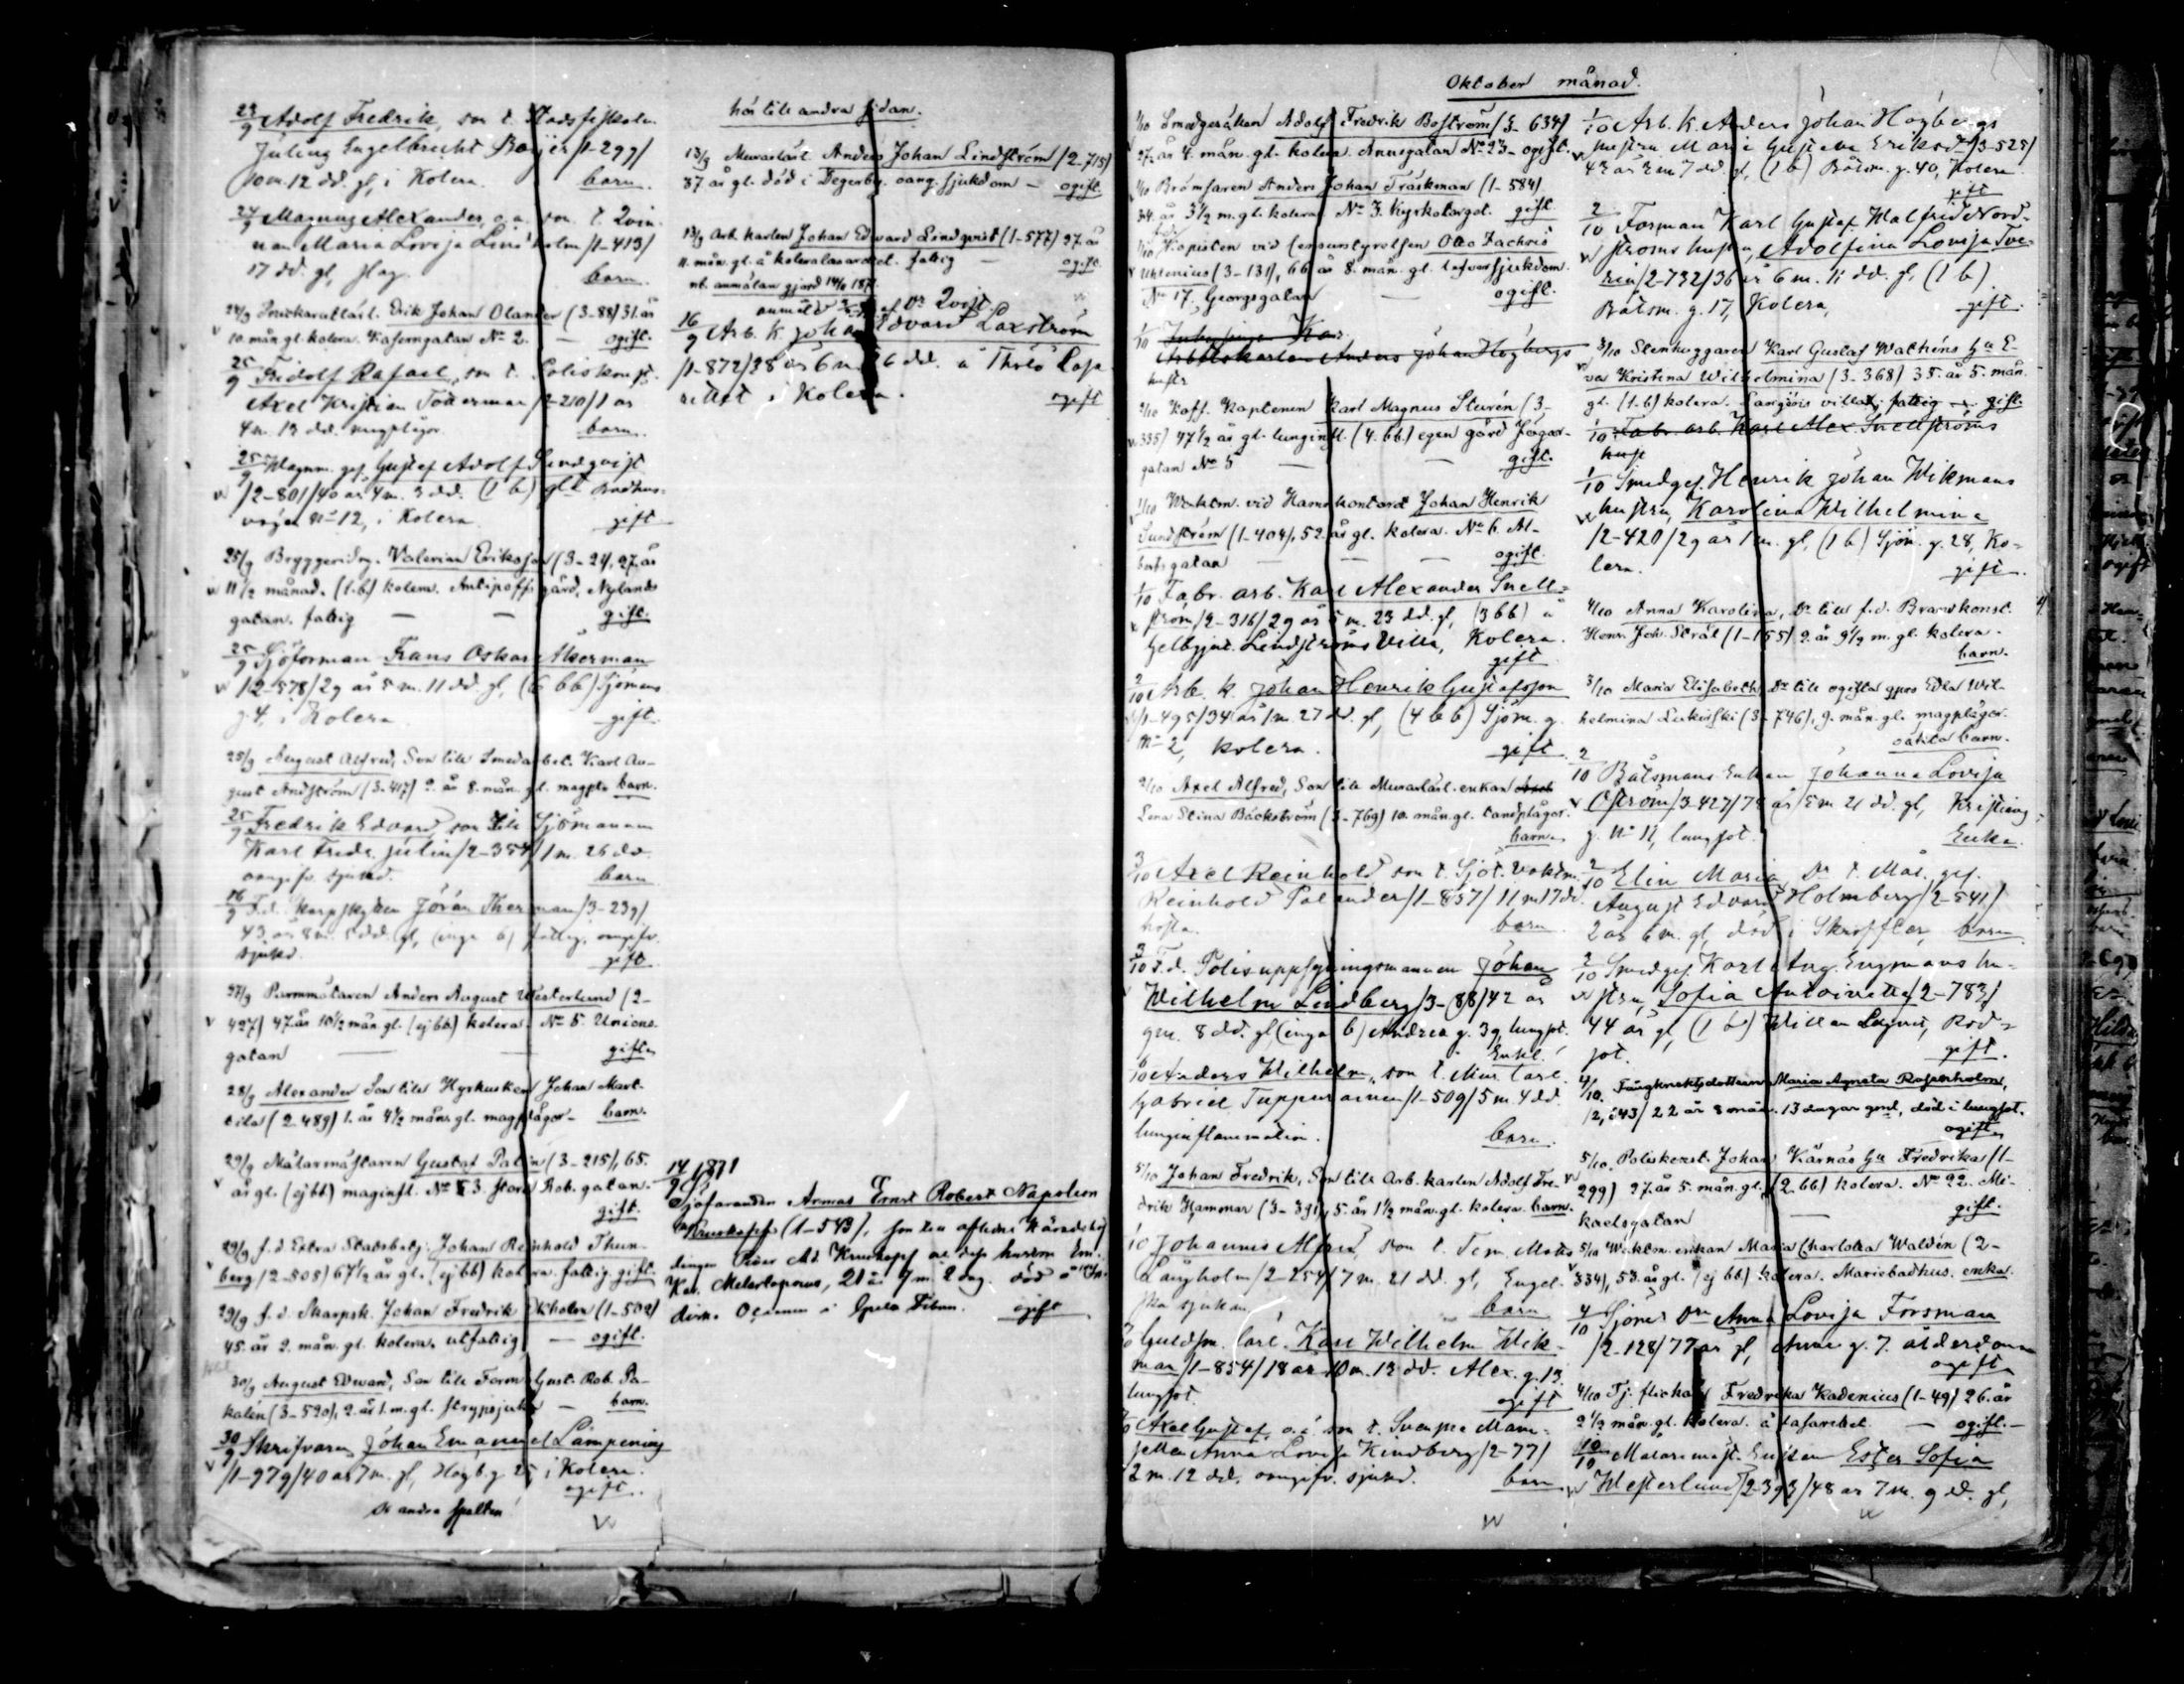 23/9 Adolf Fredrik, son t. Stadsfiskaln
Julius Engelbrecht /1-299/
10 m. 12 dd. gl, i Kolera. barn.
24/9 Magnus Alexander, o.ä. son t. Qvin-
nan Maria Lovisa Lindholm /1-413/
17 dd. gl, slag. barn.
24/9 Erik Johan Olander (3-88) 31. år
10. mån. gl. kolera. Kaserngatan No 2. — ogift.
25/9 Fridolf Rafael, son t. Poliskonst.
Axel Kristian /2-210/ 1 år
4 m. 13 dd. magplågor. barn.
25/9 Vagnm. ges. Gustaf Adolf Lindqvist
/2-801/ 40 år 4 m. 3 dd. (1 b) gl. Badhus-
vägen No 12, i Kolera. gift
25/9 Bryggeridrg. Valerian Eriksson (3-24, 27. år
11 1/2 månad. (1.b) kolera. Antipoffs gård, Nylands
gatan. fattig — — gift.
25/9 Sjöforman Frans Oskar Åkerman
/2-578/ 29 år 5 m. 11 dd. gl, (6 bb) Sjömans
g. 4, i Kolera. gift.
25/9 August Alfred, Son till Smedarbet. Karl Au-
gust Andström (3-417) 2. år 8. mån. gl. magpl. barn.
25/9 Fredrik Edvard, son till Sjömannen
Karl Fredr. Julin /2-354/ 1 m. 26 dd.
oangifv. sjukd. barn
16/9 F.d. Skarpskytten Jöran Therman /3-239/,
43 år 8 m. 5 dd. gl, (inga b) fattig, oangifv.
sjukd. gift
27/9 Parmmätaren Anders August Westerlund (2-
427) 47. år 10 1/2 mån. gl. (ej bb) kolera. No 5. Unions-
gatan — — gift.
28/9 Alexander Son till Hyrkusken Johan Mart-
tila (2-489) 1. år 4 1/2 mån. gl. magplågor- barn.
29/9 Målarmästaren Gustaf Palin (3-215), 65.
år gl. (ej bb) maginfl. No 3. Stora Rob. gatan.
gift.
29/9 f. d. Extra Stadsbetj. Johan Reinhold Thun-
berg (2-505) 67 1/2 år gl. (ej bb) kolera. fattig. gift.
29/9 f. d. Skarpsk. Johan Fredrik Ekholm (1-502)
45. år 2. mån. gl. kolera. utfattig — ogift.
30/9 August Edward, Son till Form. Gust. Rob. Pa-
kalén (3-520), 2. år 1. m. gl. strypsjuka — barn.
30/9 Skrifvaren Johan Emanuel Lampening
/1-979/ 40 år 7 m. gl, Högb. g. 25 i Kolera.
ogift.
Se andra spalten
hör till andra sidan.
13/9 Murarlärl. Anders Johan Lindström (2-715)
37 år gl. död i Degerby. oang. sjukdom — ogift.
13/9 Arb. karlen Johan Edward Lindqvist (1-577) 27. år
11. mån. gl. å koleralasarettet. fattig — ogift.
nb. anmälan gjord 14/10 187
anmäld af Dr Qvist.
16/9 Arb. K. Johan Edvard Laxström
/1-872/ 38 år 6 m. 6 dd. å Thölö Lasa-
rettet i Kolera. ogift
14/9 1871
Sjöfaranden Armas Ernst Robert Napoleon
Kruskopf (1-543), son till aflidne Häradshöf-
dingen Ad. Kruskopf och dess hustru Em.
Kar. Molortopoeus, 21 år 7 m. 2 dag. död å In-
diska Oceanen å Spela Siban. ogift
Oktober månad.
1/10 Smedgesällen Adolf Fredrik Boström (3-634)
27. år 4. mån. gl. kolera. Annegatan No 23- ogift.
1/10 Bromsaren Anders Johan Träskman (1-584)
34. år 3 1/2 m. gl. kolera No 3. Kyrkotorget. gift.
1/10 Kopisten vid Censurstyrelsen Otto Zachris
Utstenius (3-131), 66 år 8. mån. gl. lefversjukdom.
No 17. Georgsgatan — ogift.
1/10
Arbetskarlen Anders Johan Högbergs
hustr
2/10 Koff. Kaptenen Karl Magnus Sturén (3-
335) 47 1/2 år gl. lunginfl. (4. bb.) egen gård Jägar-
gatan No 5 — — gift.
1/10 Waktm. vid Hamnkontoret Johan Henrik
Sundström (1-404), 52. år gl. kolera. No 6. Al-
bertsgatan — — ogift.
1/10 Fabr. arb. Karl Alexander Snell-
ström /2-316/ 29 år 5 m. 23 dd. gl, (3 bb) å
Gelbgjut. Lindströms Villa, Kolera.
gift.
2/10 Arb. k. Johan Henrik Gustafsson
/1-495/ 34 år 1 m. 27 dd. gl, (4 bb) Sjöm. g.
No 2, kolera. gift.
2/10 Axel Alfred, Son till Murarlärl. enkan
Lena Stina Bäckström (3-769) 10. mån. gl. tandplågor.
barn.
3/10 Axel Reinhold son t. Sjöt. vaktm.
Reinhold Palander /1-857/ 11 m 17 dd.
hosta. barn.
3/10 F.d. Polisuppsyningsmannen Johan
Wilhelm Lindberg /3-88/ 42 år
9 m. 8 dd. gl, (inga b) Andrea g. 39, lungsot.
Enkl.
6/10 Anders Wilhelm, son t. Mur lärl.
Gabriel Tuppurainen /1-509/ 5 m. 4 dd.
lunginflammation. barn.
5/10 Johan Fredrik, Son till Arb. karlen Adolf Fre-
drik Hammar (3-391), 5. år 1 1/2 mån. gl. kolera. barn.
1/10 Johannes Alfred, son t. Tim. Matts
Långholm /2-254/ 7 m. 21 dd. gl, Engel-
ska sjukan. barn
Guldsm. lärl. Karl Wilhelm Wik-
man /1-854/ 18 år 10 m. 13 dd. Alex. g. 13.
lungsot. ogift
Axel Gustaf, o.ä. son t. Svenska Mam-
sellen Anna Lovisa Kindberg /2-77/
2 m. 12 dd. oangifv. sjukd. barn.
1/10 Arb. K. Anders Johan Högbergs
hustru Maria Gustava Eriksdr /3-525/
43 år 3 m 7 dd. gl, (1 b) Båtsm. g. 40, Kolera.
gift
2/10 Forsman Karl Gustaf Walfrid Nord-
ströms hustru, Adolfina Lovisa
/2-732/ 36 år 6 m. 11 dd. gl, (1 b).
Båtsm. g. 17, Kolera, gift.
3/10 Stenhuggaren Karl Gustaf Wathéns Hu E-
va Kristina Wilhelmina (3-368) 35. år 5. mån.
gl. (1-b) kolera. villa, fattig — gift.
1/10 Fabr. arb. Karl Alex. Snellströms
hust
1/10 Smidges. Henrik Johan Wikmans
hustru, Karolina Wilhelmina
/2-420/ 29 år 1 m. gl, (1 b) Sjöm. g. 28, Ko-
lera. gift.
4/10 Anna Karolina, Dr till f.d. Brandkonst.
Henr. Joh. Strål (1-155) 2. år 9 1/2 m. gl. kolera.
barn.
3/10 Maria Elisabeth Dr till ogifta qprs Edla Wil-
helmina Lukinski (3-746), 9. mån. gl. magplågor.
oäkta barn.
2/10 Båtsmans Enkan Johanna Lovisa
Öström /3-427/ 78 år 5 m 21 dd. gl, Kristine
g. No 11, lungsot. Enka.
2/10 Elin Maria Dr t. Mål. ges.
August Edvard Holmberg /2-541/
2 år 6 m. gl, död i Skroffler, barn
2/10 Smidges. Karl Aug. Engmans hu-
stru, Sofia Antoinette /2-783/
44 år gl, (1 b) Willan Lugnet, Röd-
sot. gift.
4/10. Fångknektsdottern Maria Agneta Rosenholm,
/2,543/ 22 år 8 månd. 13 dagar gml, död i lungsot.
ogift.
5/10. Poliskonst. Johan Kärnäs Hu Fredrika (1-
299) 27. år 5. mån. gl. (2. bb) kolera. No 22. Mi-
kaelsgatan — gift.
5/10 Waktm. enkan Maria Charlotta Waldén (2-
334), 53. år gl. (ej bb) kolera. Mariebadhus. enka.
4/10 Sjöms Dn Anna Lovisa Forsman
/2-128/ 77 år gl, Anne g. 7. ålderdom
ogift
4/10 Tj. flickan Fredrika Kadenius (1-49) 26. år
2 1/2 mån. gl. kolera. å lasarettet. — ogift.-
10/10 Målaremäst. Enkan Ester Sofia
Westerlund /2-393/ 48 år 7 m. 9 dd. gl,